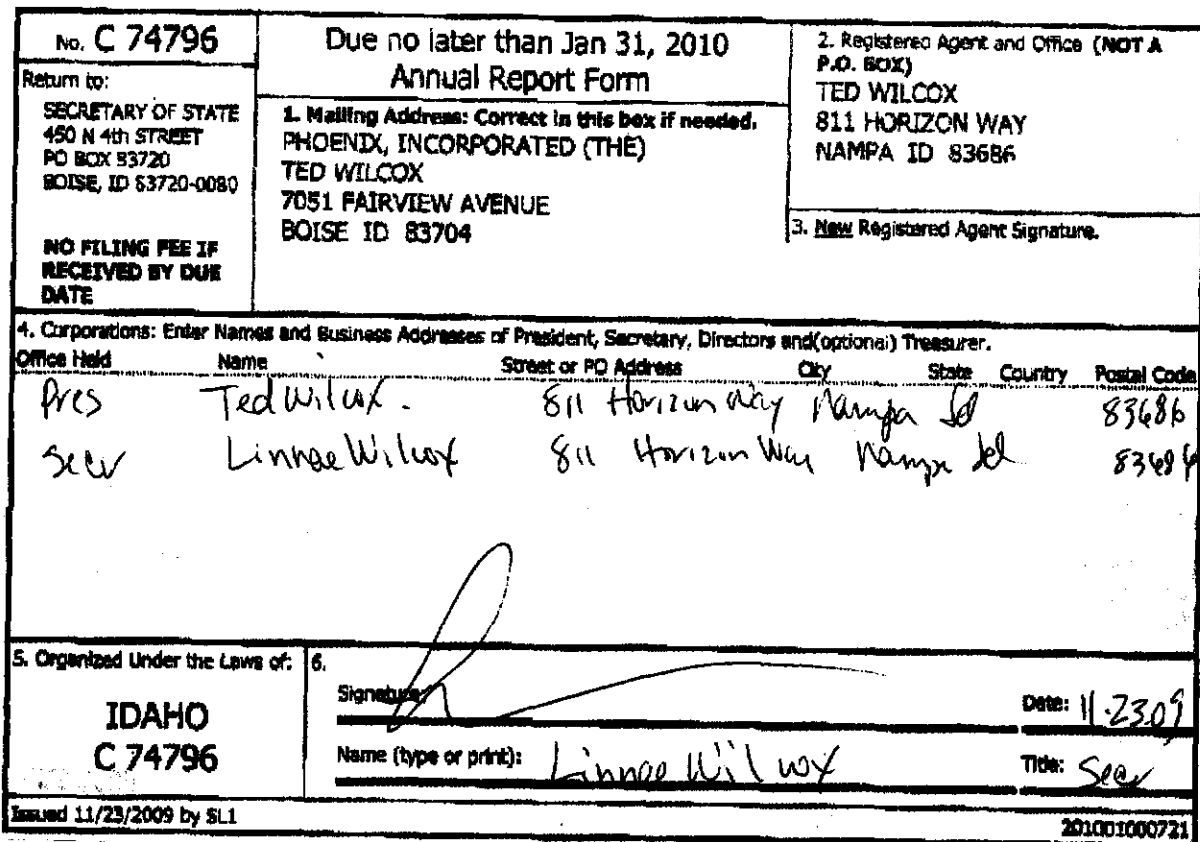 No. C 74796
Return to:
SECRETARY OF STATE
450 N 4th STREET
PO BOX 83720
BOISE, ID 83720-0080
NO FILING FEE IF
RECEIVED BY DUE
DATE
Due no later than Jan 31, 2010
Annual Report Form
1. Mailing Address: Correct in this box if needed.
PHOENIX, INCORPORATED (THE)
TED WILCOX
7051 FAIRVIEW AVENUE
BOISE ID 83704
2. Registered Agent and Office (NOT A
P.O. BOX)
TED WILCOX
811 HORIZON WAY
NAMPA ID 83686
3. New Registered Agent Signature.
4. Corporations: Enter Names and Business Addresses of President, Secretary, Directors and(optional) Treasurer.
Office Held Name Street or PO Address City State Country Postal Code
Pres Ted Wilcox. 811 Horizon Way Nampa Id 83686
Secr Linnae Wilcox 811 Horizon Way Nampa Id 83686
5. Organized Under the Laws of:
IDAHO
C 74796
6.
Signature:
Date: 11.23.09
Name (type or print): Linnae Wilcox
Title: Secr
Issued 11/23/2009 by SL1
201001000721